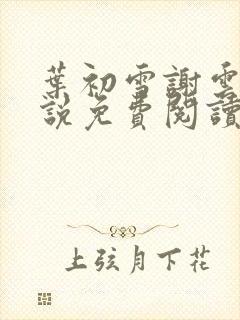 葉初雪謝雲
說免費閱讀
上弦月下花